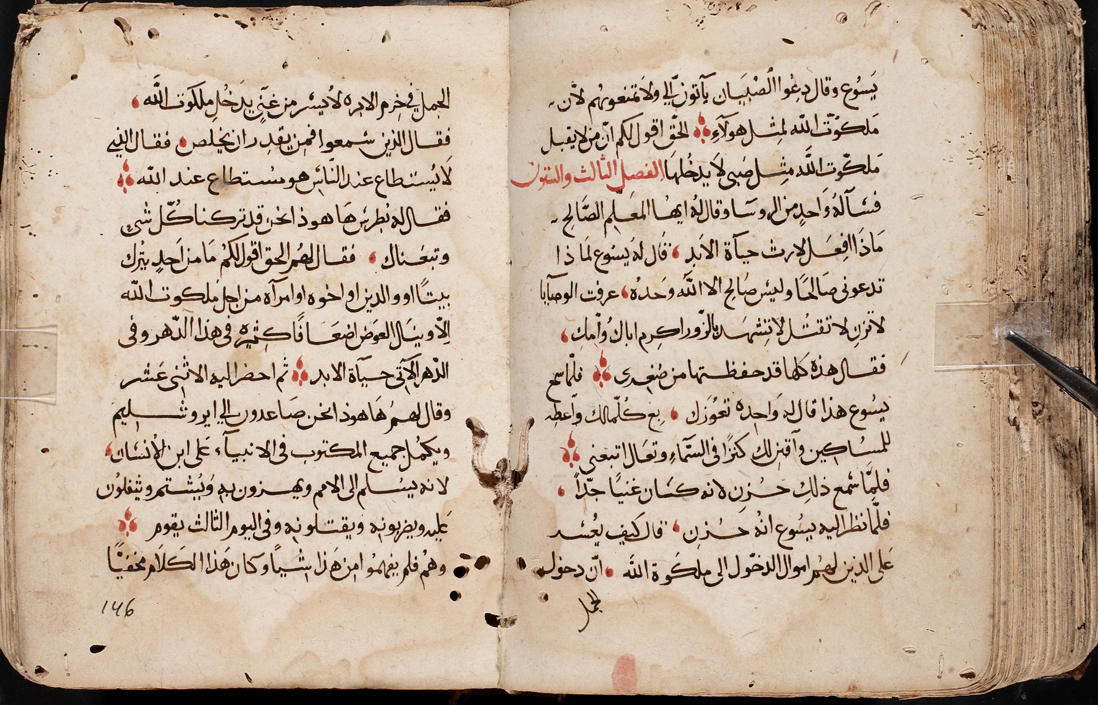 يسوع وقال دعوا الصبيان يأتون الي ولا تمنعوهم لان
ملكوت الله لمثل هولآء الحق اقول لكم ان من لا يقبل
ملكوت الله مثل صبي لا يدخلها الفصل الثالث والستون
فسآله واحد من الروسا وقال له ايها المعلم الصالح
ماذا افعل لارث حياة الابد قال له يسوع لماذا
تدعوني صالحا وليس صالح الا الله وحده عرفت الوصايا
لا تزن لا تقتل لا تشهد بالزور اكرم اباك وامك
فقال هذه كلها قد حفظتها من صغري فلما سمع
يسوع هذا قال له واحده تعوزك بع كلما لك واعطه
للمساكين وآقتن لك كنزا في السماء وتعال اتبعني
فلما سمع ذلك حزن لانه كان غنيا جدا
فلما نظر اليه يسوع انه حزن قال كيف يعسر
على الذين لهم اموال الدخول الى ملكوة الله ان دخول
الجمل
الجمل في خرم الابره لايسر من غني يدخل ملكوت الله
فقال الذين سمعوا فمن يقدر ان يخلص فقال الذي
لا يستطاع عند الناس هو مستطاع عند الله
فقال له بطرس ها هوذا نحن قد تركنا كل شي
وتبعناك فقال لهم الحق اقول لكم ما من احد يترك
بيتا او والدين او اخوه او امرآه من اجل ملكوت الله
الا وينال العوض اضعافا كثيره في هذا الدهر وفي
الدهر الآتي حياة الابد ثم احضر اليه الاثني عشر
وقال لهم ها هوذا نحن صاعدون الي ايروشليم
ويكمل جميع المكتوب في الانبيآء على ابن الانسان
لانه يسلم الى الامم ويهزون به ويشتم ويتفلون
عليه ويضربونه ويقتلونه وفي اليوم الثالث يقوم
وهم فلم يفهموا من هذا شيا وكان هذا الكلام مخفيا
146